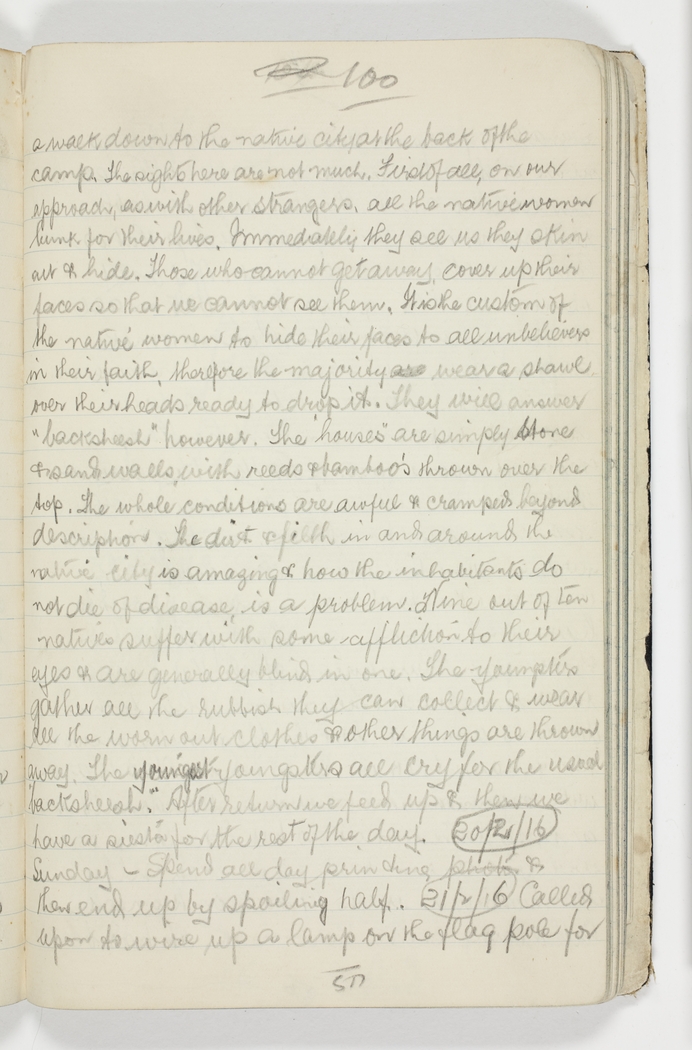 100
a walk down to the native city at the back of the
camp. The sights here are not much. First of all, on our
approach, as with other strangers, all the native women
bunk for their lives. Immediately they see us they skin
out & hide. Those who cannot get away, cover up their
faces so that we cannot see them. It is the custom of
the native women to hide their faces to all unbelievers
in their faith, therefore the majority are wear a shawl
over their heads ready to drop it. They will answer
"backsheesh" however. The "houses" are simply stone
& sand walls, with reeds & bamboo's thrown over the
top. The whole conditions are awful & cramped beyond
description. The dirt & filth in and around the
native city is amazing & how the inhabitants do
not die of disease, is a problem. Nine out of ten
natives suffer with some affliction to their
eyes & are generally blind in one. The youngsters
gather all the rubbish they can collect & wear
all the worn out clothes & other things are thrown
away. The youngest youngsters all cry for the usual
"backsheesh." After return we feed up & then we
have a siesta for the rest of the day. 20/2/16
Sunday - Spend all day printing photos &
then end up by spoiling half. 21/2/16 Called
upon to wire up a lamp on the flag pole for